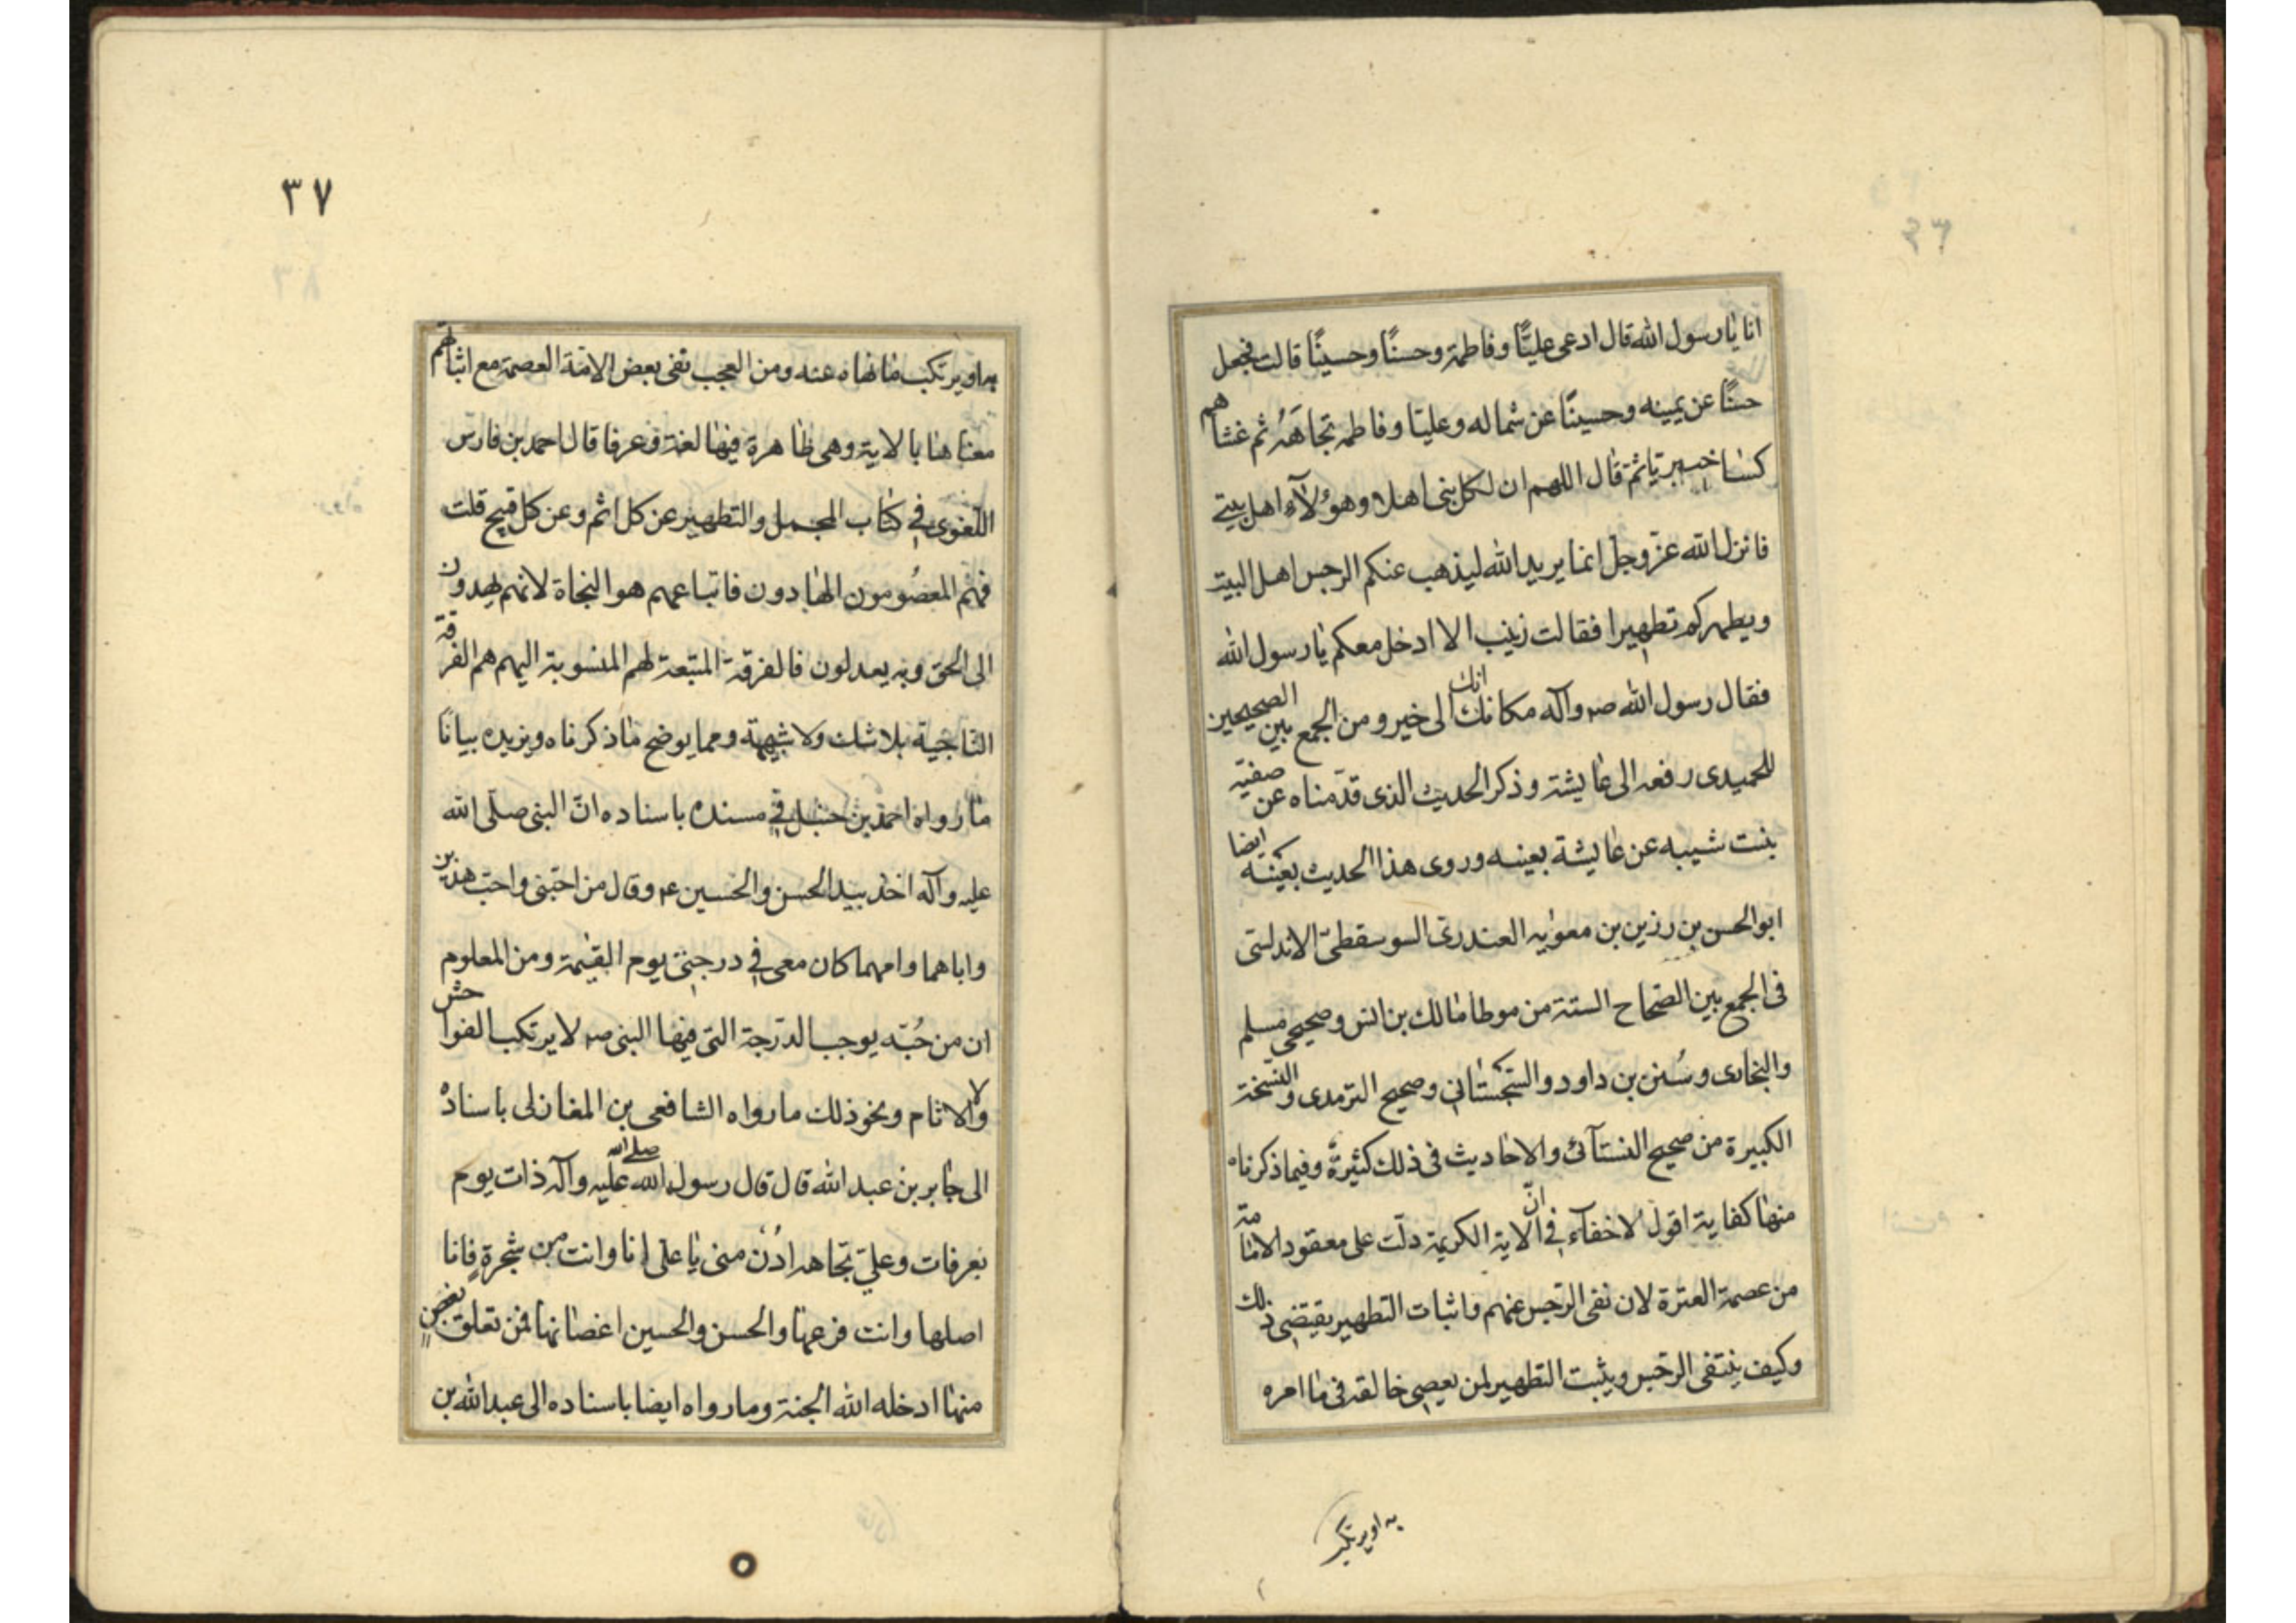 انا يا رسول الله قال ادعى عليًّا وفاطمة وحسنًا وحسينًا قالت فجعل
حسنًا عن يمينه وحسينًا عن شماله وعليا وفاطمه تجاهَهُ ثم غشاهم
كساخيبريا ثم قال اللهم ان لكل نبى اهلا وهؤلآء اهل بيتى
فانزل الله عزّ وجلّ انما يريد الله ليذهب عنكم الرجس اهل البيت
ويطهركم تطهيرا فقالت زينب الا ادخل معكم يا رسول الله
فقال رسول الله صم وآله مكانك انك الى خير ومن الجمع بين الصحيحين
للحميدى رفعه الى عايشة وذكر الحديث الذى قدّمناه عن صفيّه
بنت شيبه عن عايشة بعينه وروى هذا الحديث بعينه ايضا
ابو الحسن بن رزين بن معويه العندرى السوسقطىّ الاندلسى
فى الجمع بين الصحاح الستة من موطا مالك بن انس وصحيحى مسلم
والبخارى وسُنن بن داود والسّجستانى وصحيح الترمدى والنّسخة
الكبيرة من صحيح النسآئى والاحاديث فى ذلك كثيرة وفيما ذكرناه
منها كفاية اقول لاخفآء فى انّ الاية الكريمة دلّت على معقود الامامة
من عصمة العترة لان نفى الرّجس عنهم واثبات التطهير يقتضى ذلك
وكيف ينتفى الرّجس ويثبت التطهير لمن يعصى خالقه فى ما امره
به اويرتكب
٣٧
به اويرتكب ما نهاه عنه ومن العجب نفى بعض الامّة العصمة مع اثباتهم
معناها بالاية وهى ظاهرة فيها لغة وعرفا قال احمد بن فارس
اللّغوى فى كتاب المجمل والتطهير عن كل اثم وعن كل قبيح قلت
فهم المعصُومون الهادون فاتباعهم هو النجاة لانهم يهدون
الى الحق وبه يعدلون فالفرقة المتبعة لهم المنسوبة اليهم هم الفرقة
الناجية بلا شك ولا شبهة ومما يوضح ما ذكرناه ويزيده بيانًا
ما رواه احمد بن حنبل فى مسنده باسناده انّ النبى صلى الله
عليه وآله اخذ بيد الحسن والحسين ع وقال من احبّنى واحب هذين
واباهما وامهما كان معى فى درجتى يوم القيمة ومن المعلوم
ان من حُبّه يوجب الدّرجة التى فيها النبى صم لا يرتكب الفواحش
ولا الاثام ونحو ذلك ما رواه الشافعى بن المغازلى باسناده
الى جابر بن عبد الله قال قال رسول الله صلى الله عليه وآله ذات يوم
بعرفات وعلىّ تجاهه ادُن منى يا على انا وانت من شجرة فانا
اصلها وانت فرعها والحسن والحسين اغصانها فمن تعلق بغصن
منها ادخله الله الجنة وما رواه ايضا باسناده الى عبد الله بن